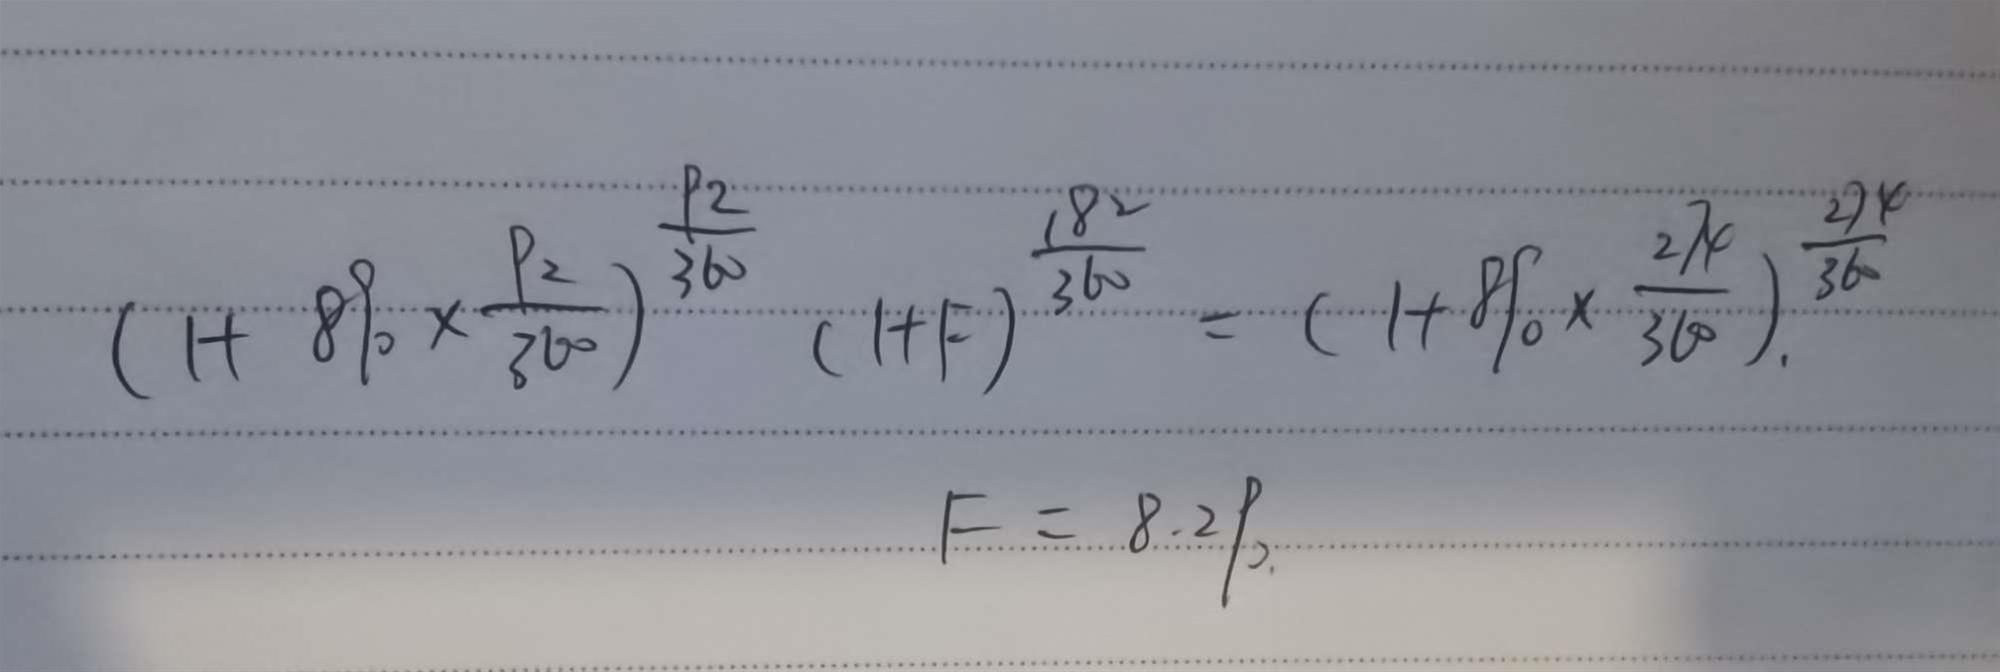 (1+8%×92/360)^(92/360) (1+F)^(182/360) = (1+8%×274/360)^(274/360).
F = 8.2%.